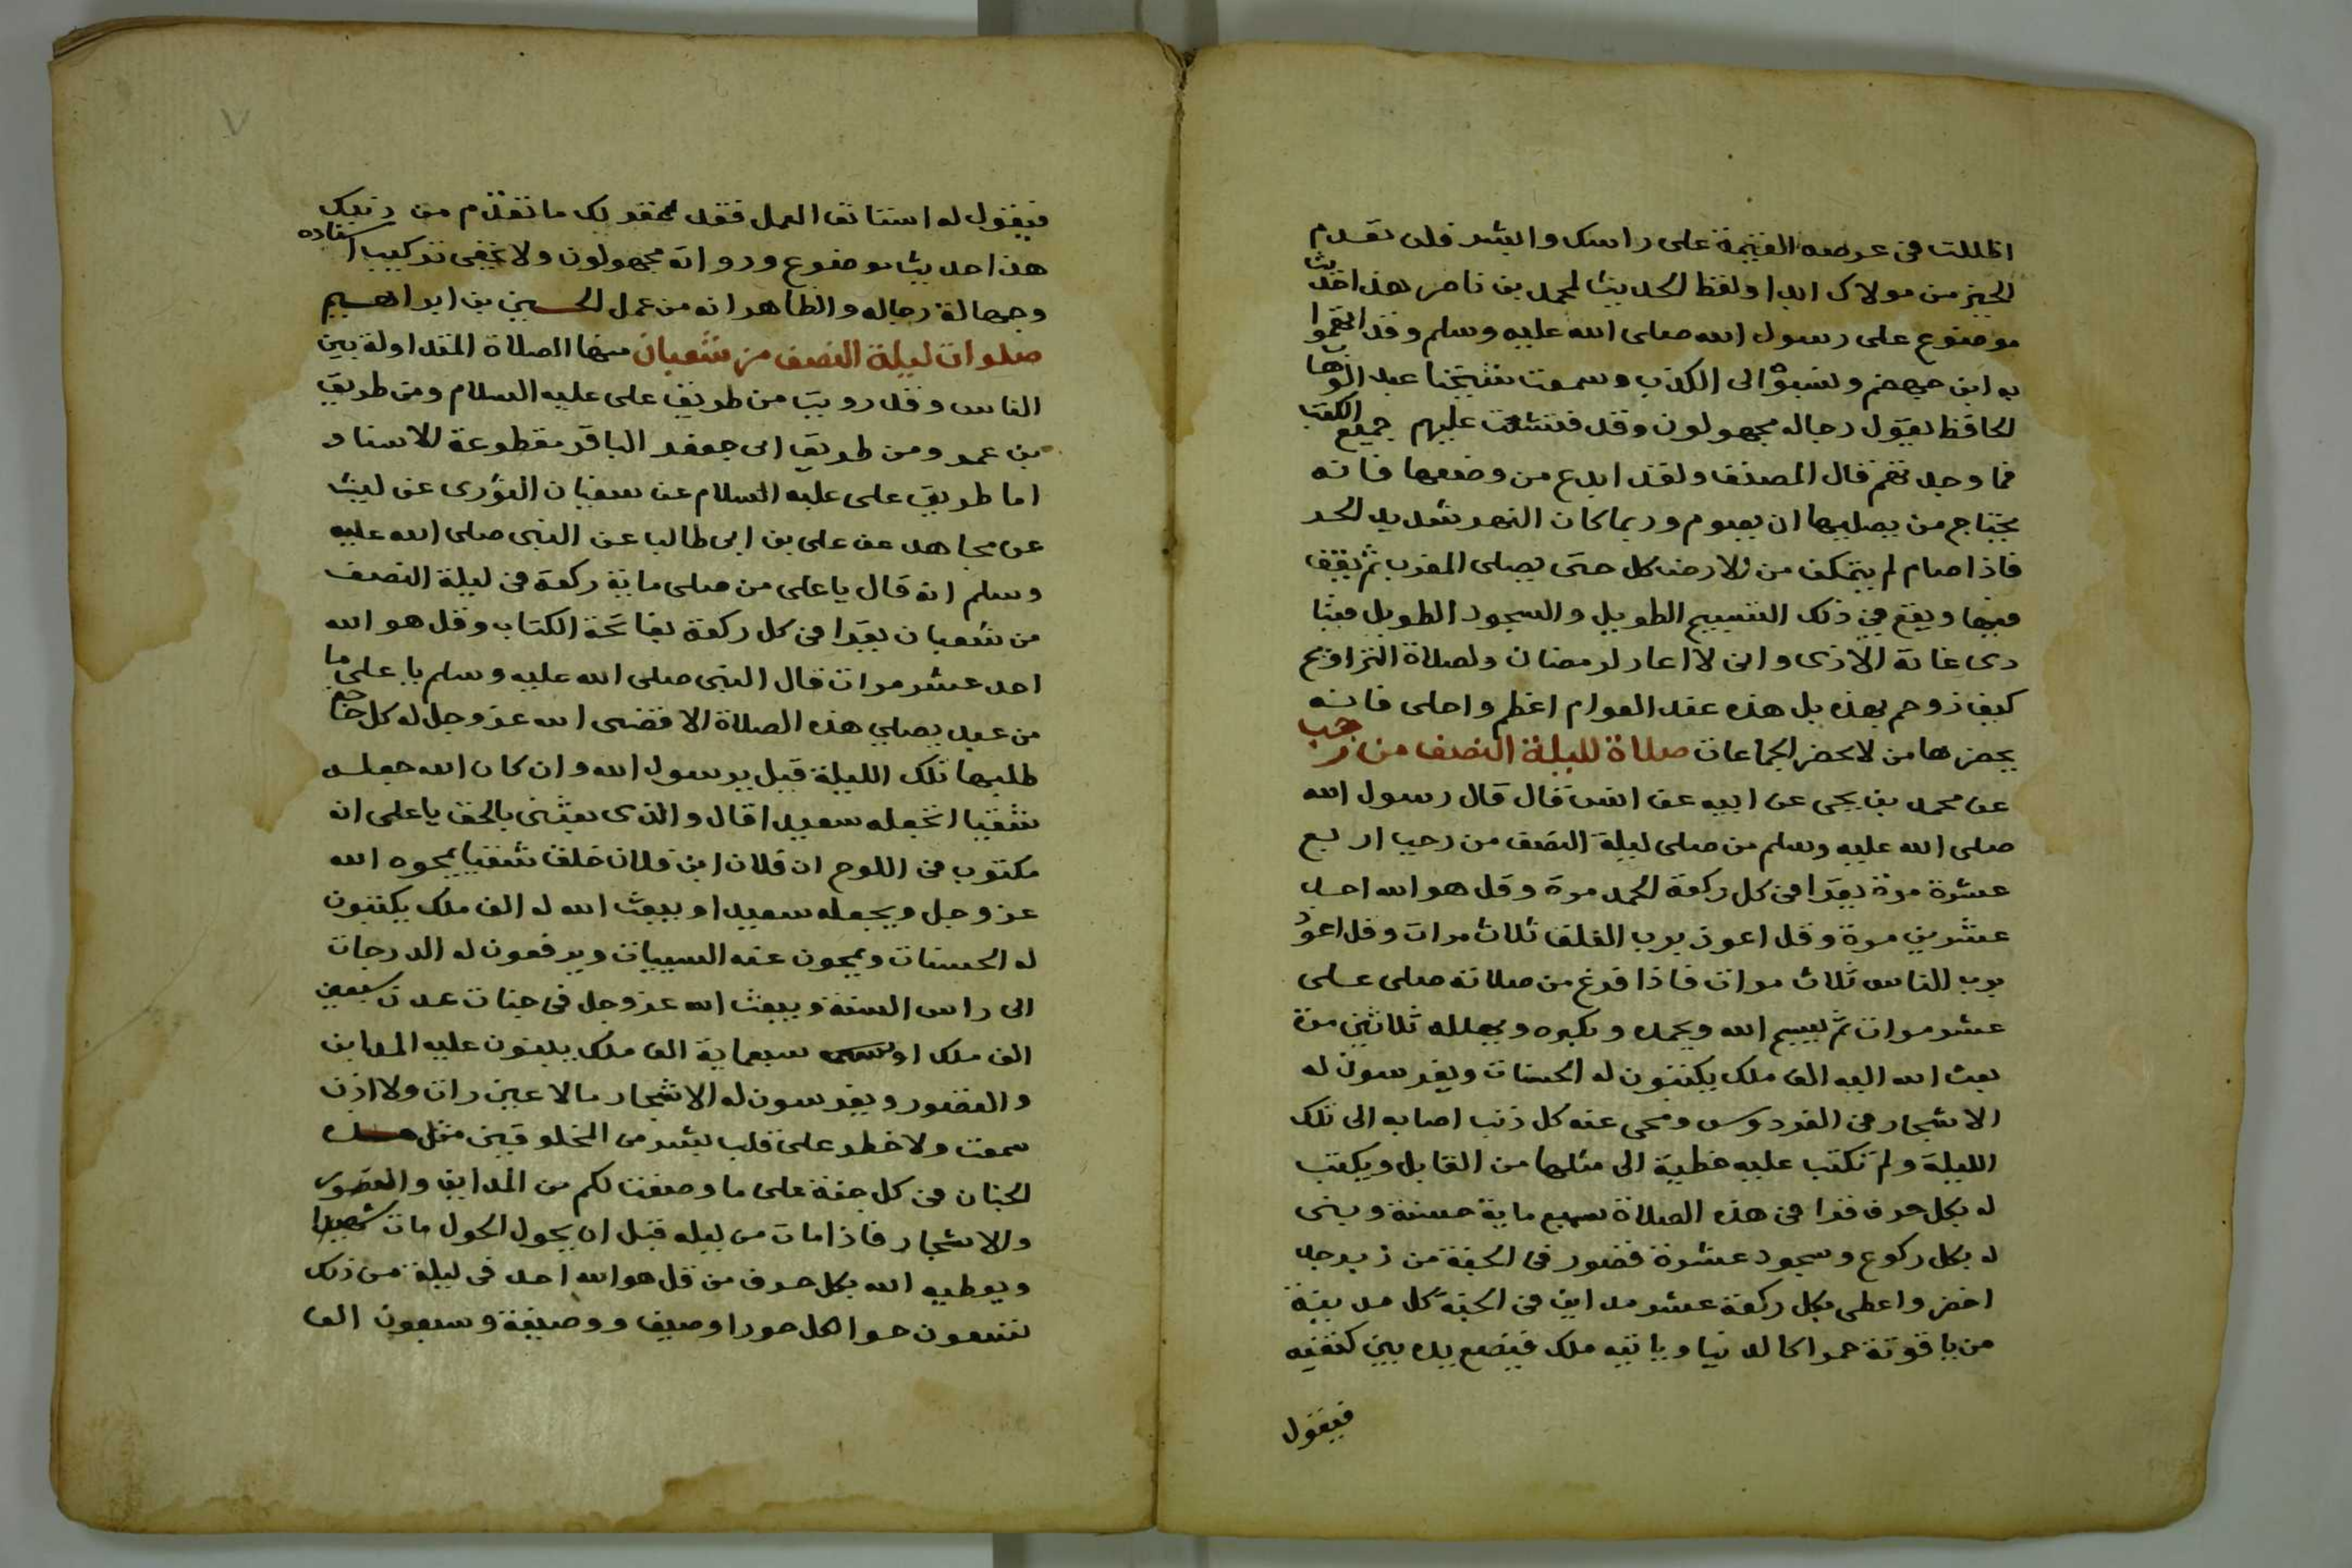 اظللت في عرصه القيمة على راسك وابشر فلن تعدم
الخير من مولاك ابدا ولفظ الحديث لمحمد بن ناصر هذا حديث
موضوع على رسول الله صلى الله عليه وسلم وقد اتهموا
به ابن جهضم ونسبوا الى الكذب وسمعت شيخنا عبد الوهاب
الحافظ يقول رجاله مجهولون وقد فتشت عليهم جميع الكتب
فما وجدتهم قال المصنف ولقد ابدع من وضعها فانه
يحتاج من يصليها ان يصوم وربما كان النهر شديد الحر
فاذا صام لم يتمكن من الارض كل حتى يصلي المغرب ثم يقف
فيها ويقع في ذلك التسبيح الطويل والسجود الطويل فيتا
دى غاية الاذى واني لا اعار لرمضان ولصلاة التراويح
كيف زوحم بهذه بل هذه عند العوام اعظم واحلى فانه
يحضرها من لا يحضر الجماعات صلاة لليلة النصف من رجب
عن محمد بن يحيى عن ابيه عن انس قال قال رسول الله
صلى الله عليه وسلم من صلى ليلة النصف من رجب اربع
عشرة مرة يقرا في كل ركعة الحمد مرة وقل هو الله احد
عشرين مرة وقل اعوذ برب الفلق ثلاث مرات وقل اعوذ
برب الناس ثلاث مرات فاذا فرغ من صلاته صلى علي
عشر مرات ثم يسبح الله ويحمده ويكبره ويهلله ثلاثين مرة
بعث الله اليه الف ملك يكتبون له الحسنات ويغرسون له
الاشجار في الفردوس ومحى عنه كل ذنب اصابه الى تلك
الليلة ولم تكتب عليه خطية الى مثلها من القابل ويكتب
له بكل حرف قرا في هذه الصلاة سبع ماية حسنة وبنى
له بكل ركوع وسجود عشرة قصور في الجنة من زبرجد
اخضر واعطى بكل ركعة عشر مداين في الجنة كل مدينة
من ياقوتة حمرا كالدنيا وياتيه ملك فيضع يده بين كتفيه
فيقول
٧
فيقول له استانف العمل فقد غفر لك ما تقدم من ذنبك
هذا حديث موضوع ورواته مجهولون ولا يخفى تركيب اسناده
وجهالة رجاله والظاهر انه من عمل الحسين بن ابراهيم
صلوات ليلة النصف من شعبان منها الصلاة المتداولة بين
الناس وقد رويت من طريق علي عليه السلام ومن طريق
بن عمر ومن طريق ابي جعفر الباقر مقطوعة الاسناد
اما طريق علي عليه السلام عن سفيان الثوري عن ليث
عن مجاهد عن علي بن ابي طالب عن النبي صلى الله عليه
وسلم انه قال يا علي من صلى ماية ركعة في ليلة النصف
من شعبان يقرا في كل ركعة بفاتحة الكتاب وقل هو الله
احد عشر مرات قال النبي صلى الله عليه وسلم يا علي ما
من عبد يصلي هذه الصلاة الا قضى الله عز وجل له كل حاجة
طلبها تلك الليلة قيل يرسول الله وان كان الله جعله
شقيا اتجعله سعيدا قال والذي بعثني بالحق يا علي انه
مكتوب في اللوح ان فلان ابن فلان خلق شقيا يمحوه الله
عز وجل ويجعله سعيدا ويبعث الله له الف ملك يكتبون
له الحسنات ويمحون عنه السييات ويرفعون له الدرجات
الى راس السنة ويبعث الله عز وجل في جنات عدن سبعين
الف ملك او سبعماية الف ملك يبنون عليه المداين
والقصور ويغرسون له الاشجار ما لا عين رات ولا اذن
سمعت ولا خطر على قلب بشر من المخلوقين مثل هذه
الجنان في كل جنة على ما وصفت لكم من المداين والقصور
والاشجار فاذا مات من ليله قبل ان يحول الحول مات شهيدا
ويعطيه الله بكل حرف من قل هو الله احد في ليلة من ذلك
تسعون حورا لكل حورا وصيف ووصيفة وسبعون الف